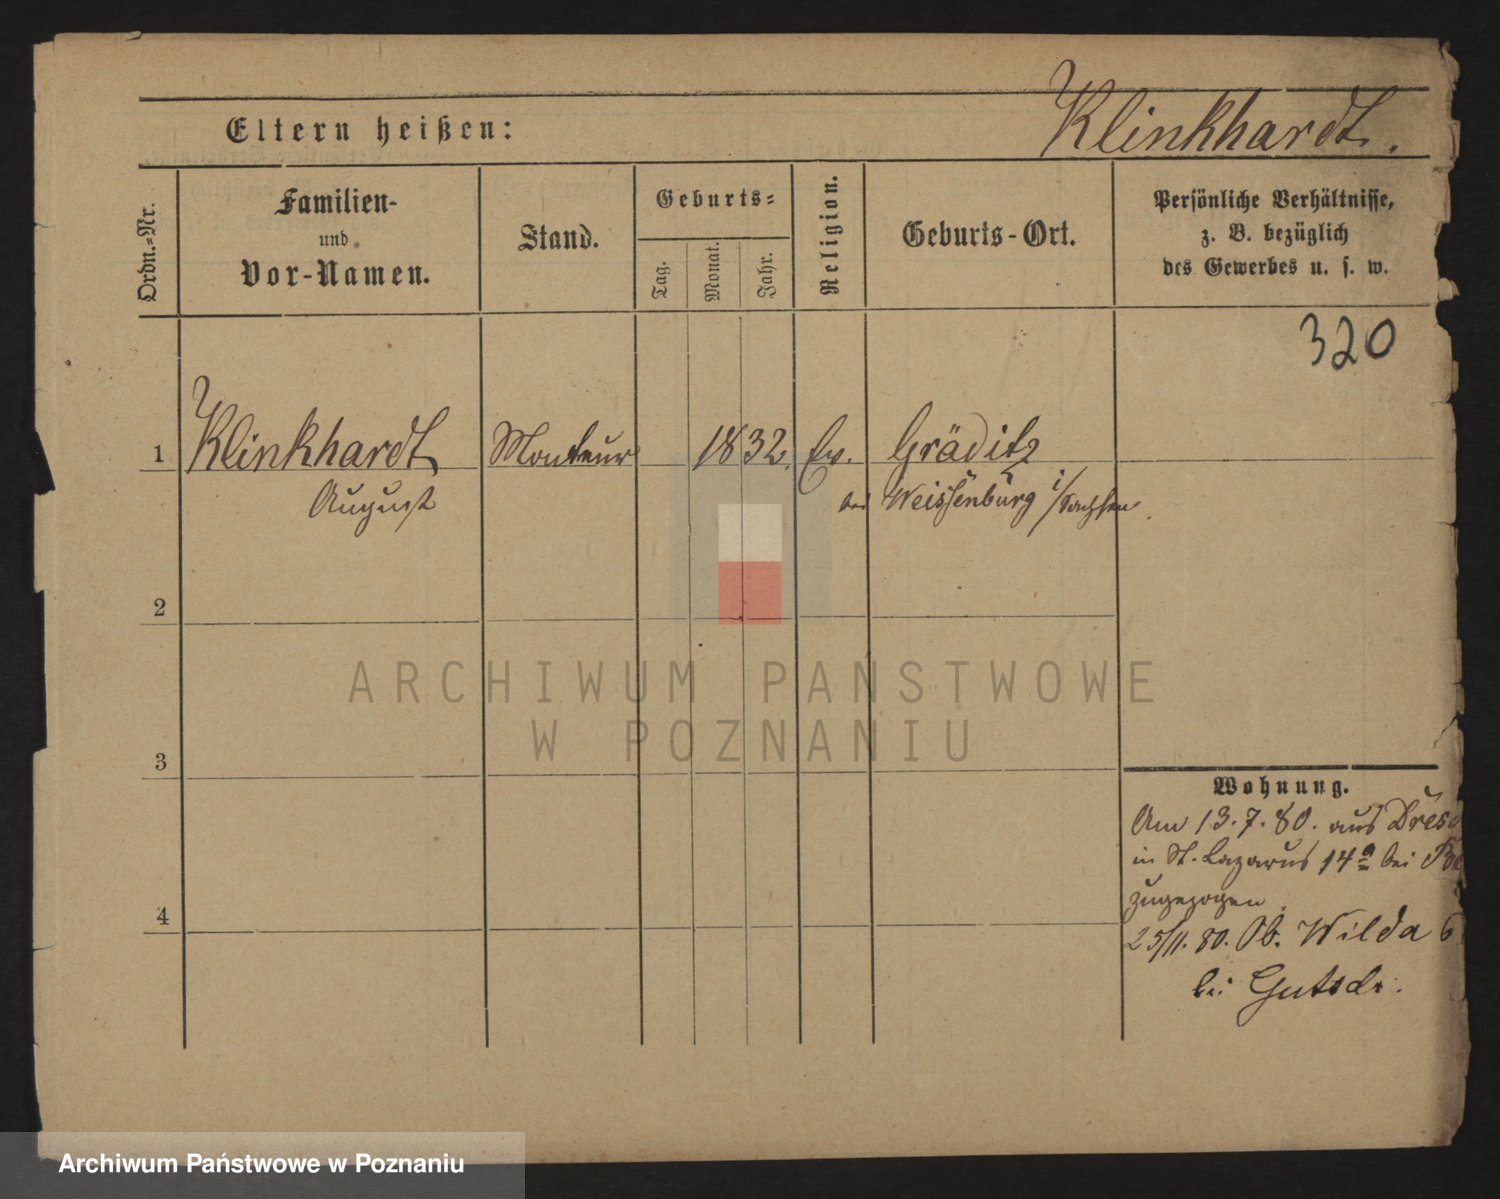 Klinkhardt.
Eltern heißen:
Ordn.=Nr.
Familien-
und
Vor-Namen.
Stand.
Geburts=
Tag.
Monat.
Jahr.
Religion.
Geburts-Ort.
Persönliche Verhältnisse,
z. B. bezüglich
des Gewerbes u. s. w.
320
1 Klinkhardt Monteur 1832. Ev. Gräditz
August bei Weissenburg i/Sachsen
2
3
4
Wohnung.
Am 13.7.80. aus
in St. Lazarus 14a bei
zugezogen.
25/11.80. Ob. Wilda 6
bei
ARCHIWUM PAŃSTWOWE
W POZNANIU
Archiwum Państwowe w Poznaniu